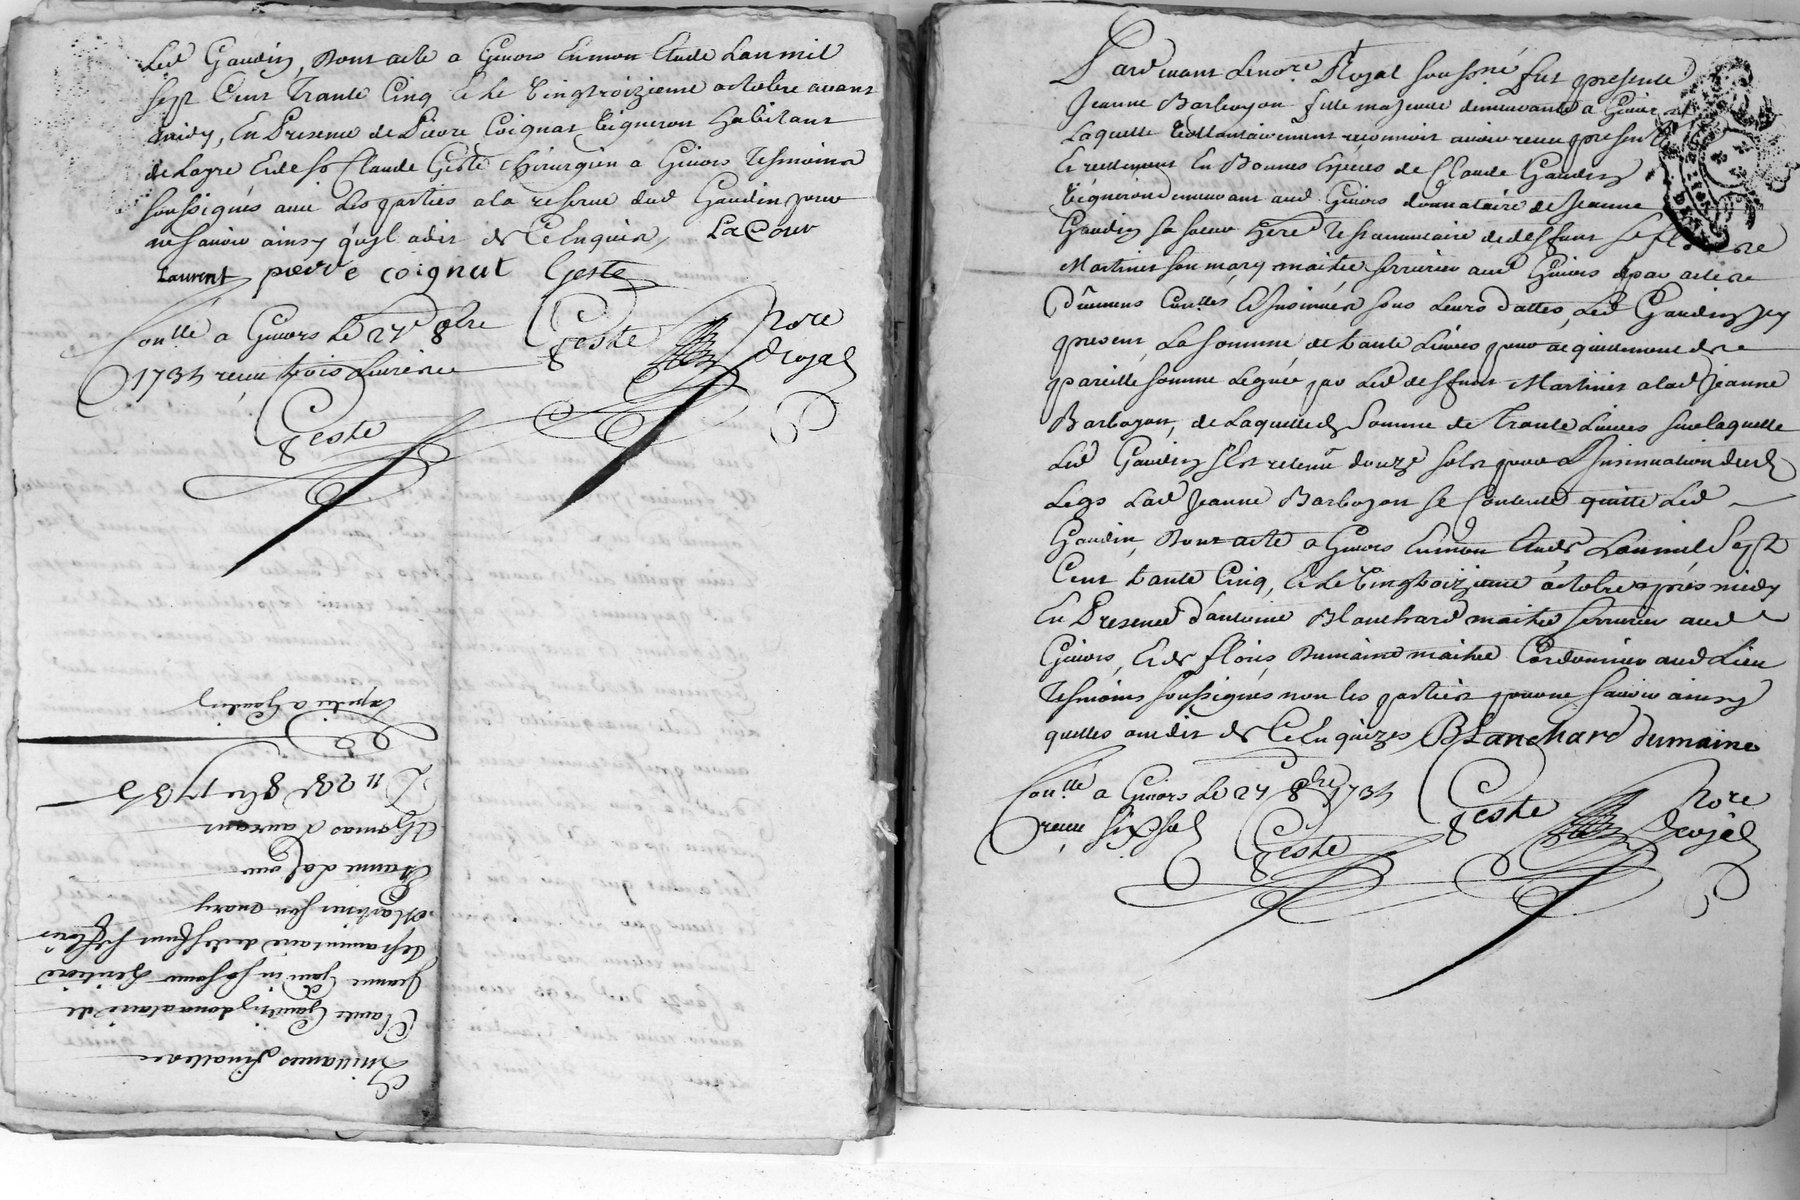 Led Gaudin, Dont acte a Givors En mon Etude Lan mil
sept Cent Trante Cinq & Le Vingtroizieme octobre avant
midy, En Presence de Pierre Coignat Vigneron habitant
de Loyre Et de sr Claude Geste Chirurgien a Givors tesmoins
soussignés avec Les parties a la reserve dud Gaudin pour
ne savoir ainsy qu'yl a dit de Ce Enquis, La Cour
Laurent pierre coignat Geste
Conllé a Givors Le 27e 8bre
1735 receu trois Livres
Geste
Geste
Nore
Royal
Quittances finalles
Claude Gaudin donnataire de
Jeanne Gaudin sa soeur heritiere
testamentaire de deffunt sr
Martinier son mary
Jeanne Lacour
Thomas Laurent
Du 23e 8bre 1735
Expedié a Gaudin
Pardevant Le nore Royal soussigné fut presente
Jeanne Barboyon fille majeure demeurante a Givors
Laquelle Vollontairement reconnoit avoir receu presentement
Et reellement En Bonnes Especes de Claude Gaudin
Vigneron demeurant aud Givors donnataire de Jeanne
Gaudin sa soeur here Testamentaire de deffunt
Martinier son mary maitre serrurier aud Givors par acte
Duement Conllés & Insinués sous Leurs dattes, Led Gaudin Icy
present, La somme de trante Livres pour acquittement de
pareille somme Leguée par Led deffunt Martinier a lad Jeanne
Barboyon, de Laquelle Somme de Trante Livres sur laquelle
Led Gaudin s'Est retenu douze sols pour L'Insinuation dud
Legs Lad Jeanne Barboyon se Contente quitte Led
Gaudin, Dont acte a Givors En mon Etude Lan mil Sept
Cent trante Cinq, & Le Vingtroizieme octobre apres midy
En Presence d'antoine Blanchard maitre serrurier aud
Givors, Et de floris Dumaine maitre Cordonnier aud Lieu
Tesmoins soussignés non les parties pour ne savoir ainsy
quelles ont dit de Ce Enquizes Blanchard dumaine
Conllé a Givors Le 27 8bre 1735
receu six sols
Geste
Geste
Nore
Royal